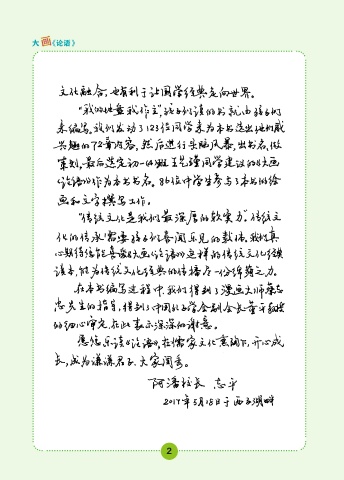 大画《论语》
文化融合，也有利于让国学经典走向世界。
“我的地盘我作主”，孩子们读的书就由孩子们
来编写。我们发动了123位同学来为本书选出他们感
兴趣的72章内容，然后进行头脑风暴，出书名，做
策划，最后选定初一(4)班王艺强同学建议的《大画
《论语》》作为本书书名。86位中学生参与了本书的绘
画和文字撰写工作。
“传统文化是我们最深厚的软实力”。传统文
化的传承需要孩子们喜闻乐见的载体。我们真
心期待能像《大画〈论语〉》这样的传统文化经典
读本，能为传统文化经典的传播尽一份绵薄之力。
在本书编写过程中，我们得到了漫画大师蔡志
忠先生的指导，得到了中国孔子学会副会长董平教授
的细心审定，在此表示深深的谢意。
愿你乐读《论语》，在儒家文化熏陶下，开心成
长，成为谦谦君子、大家闺秀。
阿潘校长 志平
2017年5月18日于西子湖畔
2